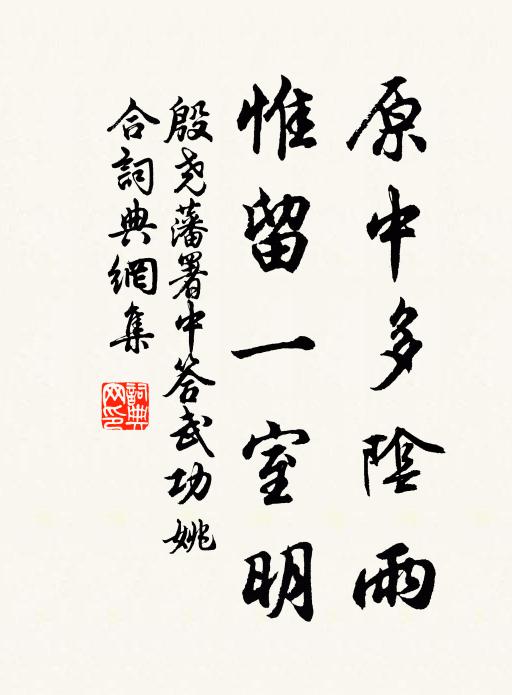 原中多陰雨
惟留一室明
殷尧藩署中答武功姚
合詞典網集
詞典网印